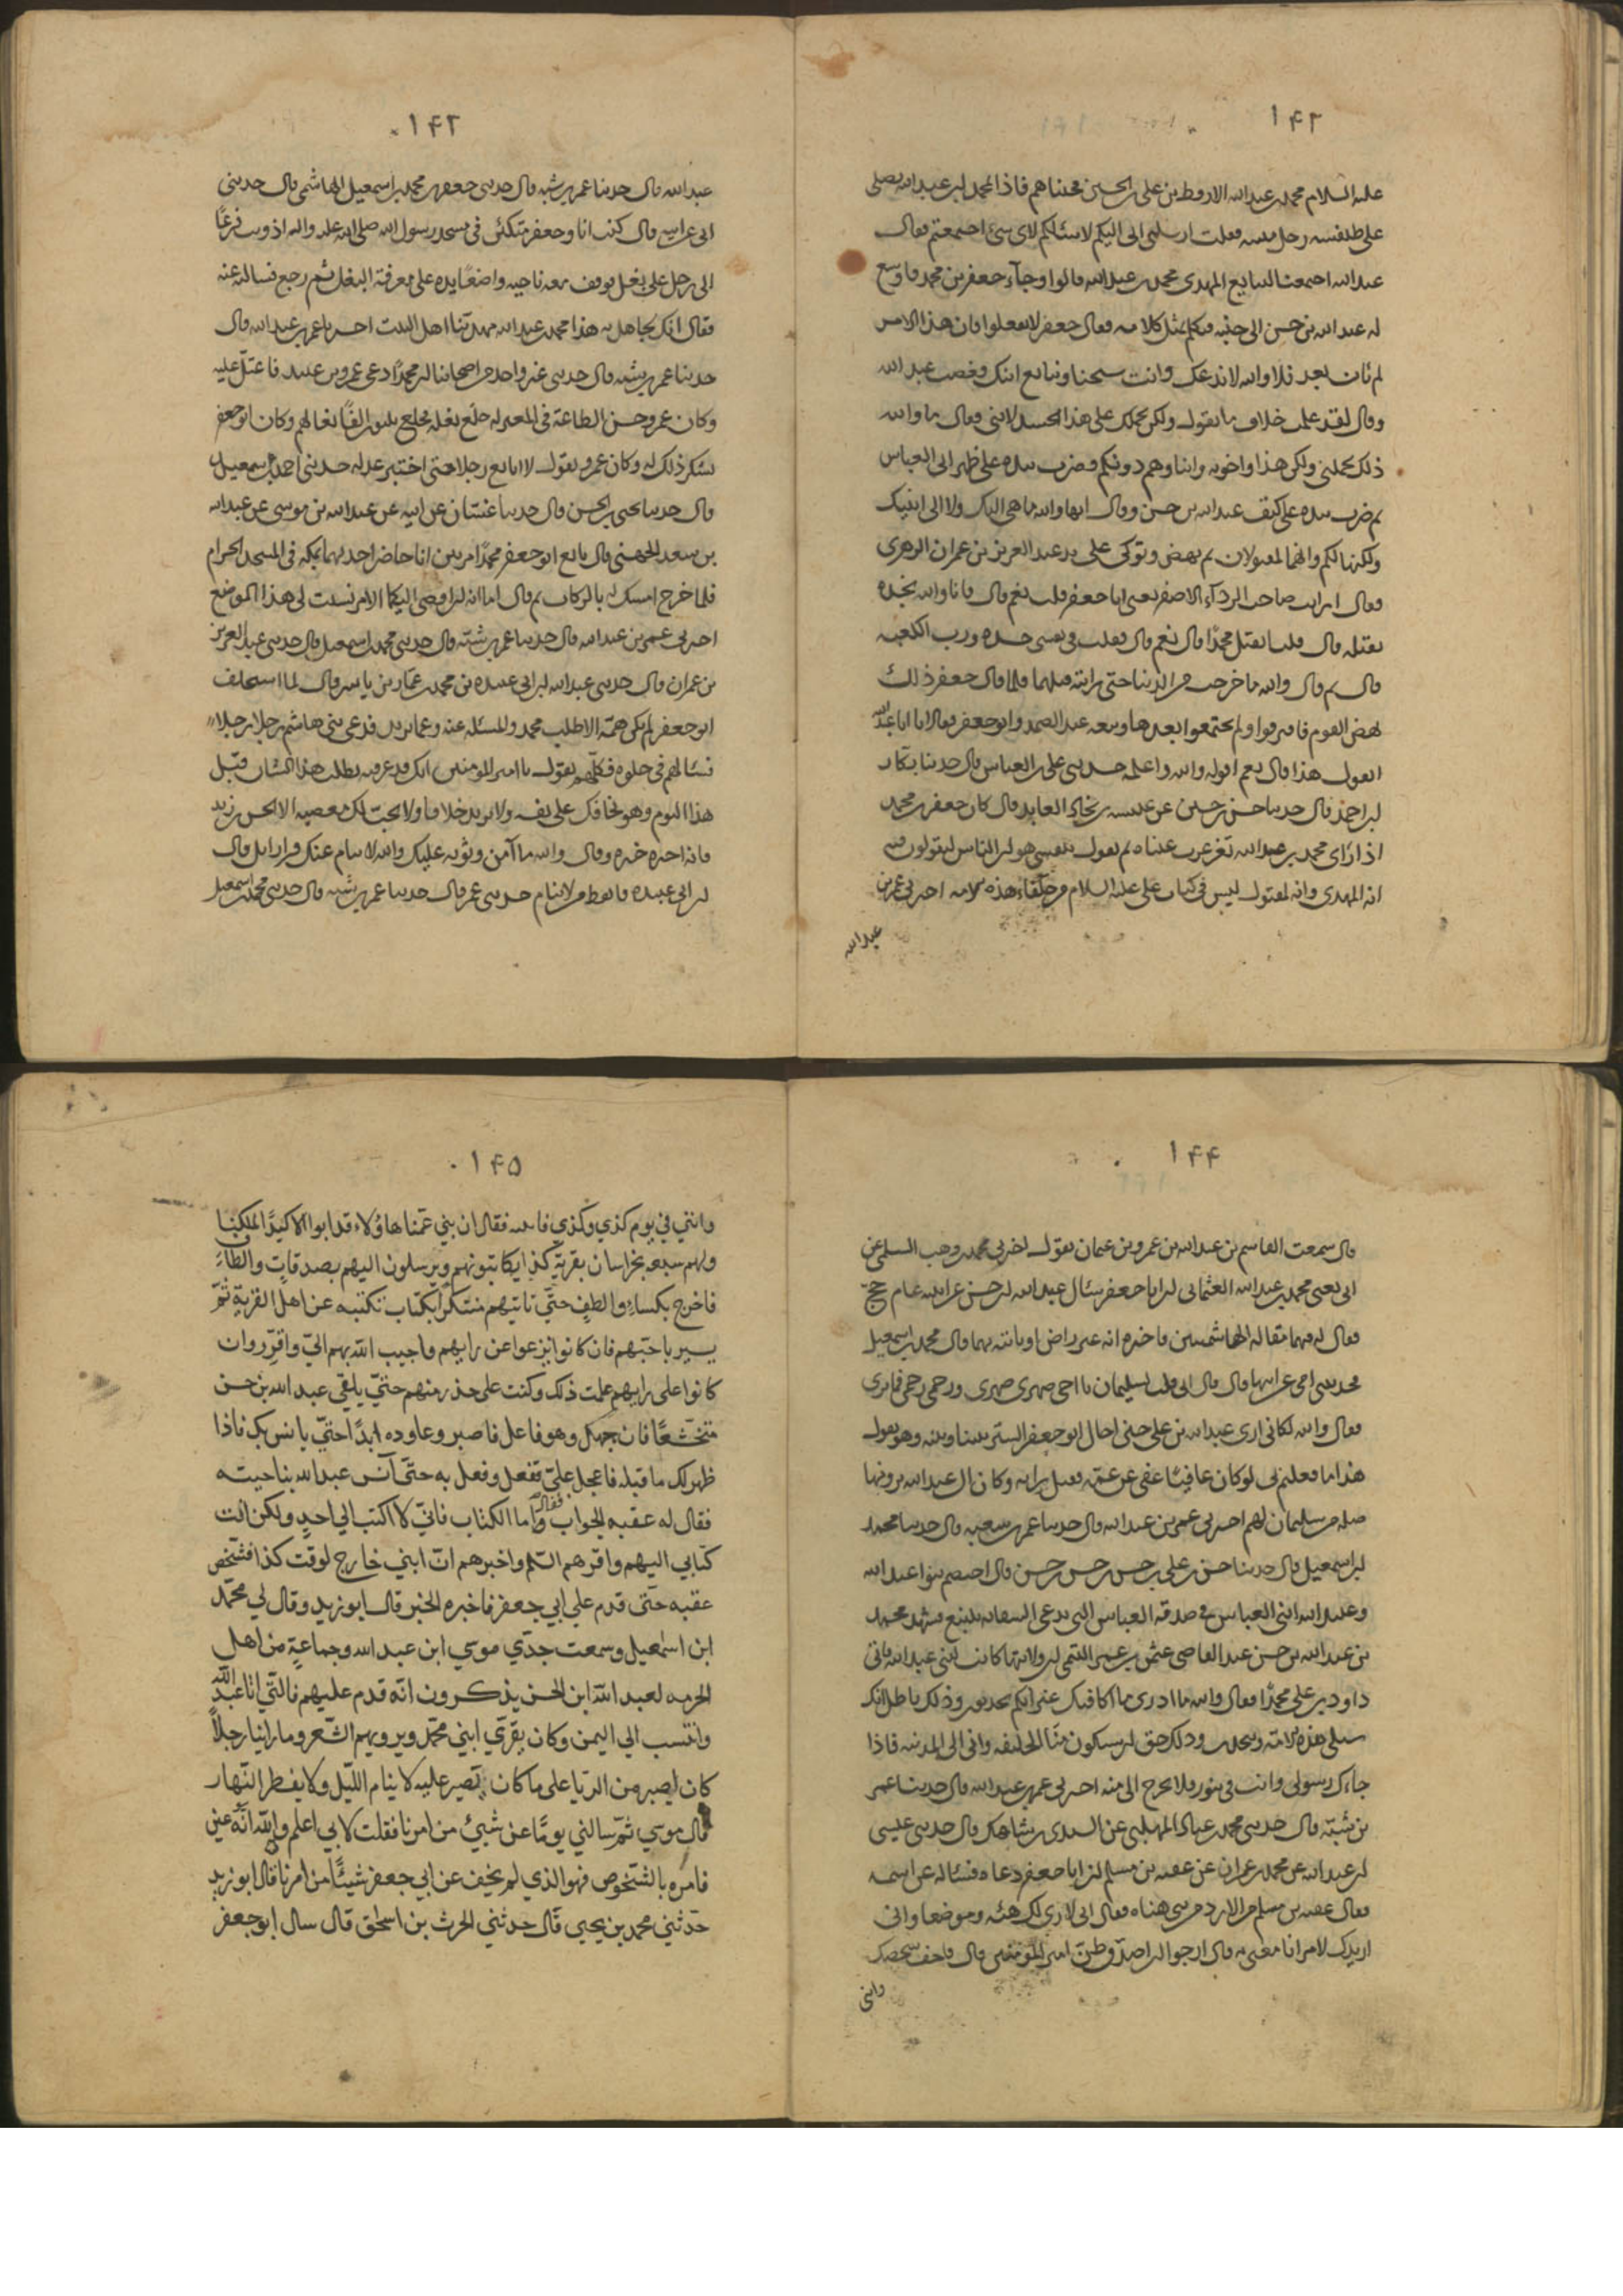 ۱۴۲
عليه السلام محمد بن عبدالله الارقط بن علي بن الحسين فجئناهم فاذا محمد بن عبدالله يصلي
على طنفسه رحل مثنيه فقلت ارسلني ابي اليكم لاسئلكم لاي شئ اجتمعتم فقال
عبدالله اجتمعنا لنبايع المهدي محمد بن عبدالله قالوا وجاء جعفر بن محمد فاوسع
له عبدالله بن حسن الى جنبه فتكلم بمثل كلامه فقال جعفر لا تفعلوا فان هذا الامر
لم يأت بعد فلا والله لا ندعك وانت شيخنا ونبايع ابنك فغضب عبدالله
وقال لقد علمت خلاف ما تقول ولكن يحملك على هذا الحسد لابني فقال ما والله
ذلك يحملني ولكن هذا واخوته وابناؤهم دونكم وضرب بيده على ظهر ابي العباس
ثم ضرب بيده على كتف عبدالله بن حسن وقال انها والله ما هي اليك ولا الى ابنيك
ولكنها لكم وانهما لمقتولان ثم نهض وتوكى على يد عبدالعزيز بن عمران الزهري
فقال ارايت صاحب الردآء الاصفر يعني ابا جعفر قلت نعم قال فانا والله نجده
يقتله قال قلت ايقتل محمدًا قال نعم قال فقلت في نفسي حسده ورب الكعبه
قال ثم قال والله ما خرجت من الدنيا حتى رايته قتلهما فلما قال جعفر ذلك
نهض القوم فافترقوا ولم يجتمعوا بعدها وتبعه عبدالصمد وابوجعفر فقالا يا ابا عبدالله
اتقول هذا قال نعم اقوله والله واعلمه حدثني علي بن العباس قال حدثنا بكار
بن احمد قال حدثنا حسن بن حسين عن عنبسه بن نجاد العابد قال كان جعفر بن محمد
اذا رأى محمد بن عبدالله تغرغرت عيناه ثم يقول بنفسي هو ان الناس ليقولون فيه
انه المهدي وانه لمقتول ليس في كتاب علي عليه السلام من خلفاء هذه الامه اخبرني عمر بن
عبدالله
۱۴۳
عبدالله قال حدثنا عمر بن شبه قال حدثني جعفر بن محمد بن اسمعيل الهاشمي قال حدثني
ابي عن ابيه قال كنت انا وجعفر متكئ في مسجد رسول الله صلى الله عليه واله اذ وثب فزعًا
الى رجل على بغل فوقف معه ناحيه واضعًا يده على معرفة البغل ثم رجع فسالته عنه
فقال انك لجاهل به هذا محمد بن عبدالله مهدينا اهل البيت اخبرنا عمر بن عبدالله قال
حدثنا عمر بن شبه قال حدثني غير واحد من اصحابنا ان محمدًا دعى عمرو بن عبيد فاعتلّ عليه
وكان عمرو حسن الطاعة في المعتزله خلع نعله فخلع ثلثون الفًا نعالهم وكان ابوجعفر
يشكر ذلك له وكان عمرو يقول لا ابايع رجلا حتى اختبر عدله حدثني احمد بن اسمعيل
قال حدثنا يحيى بن الحسن قال حدثنا غسّان عن ابيه عن عبدالله بن موسى عن عبدالله
بن سعد الجهني قال بايع ابوجعفر محمدًا مرتين انا حاضر احديهما بمكه في المسجد الحرام
فلما خرج امسك له بالركاب ثم قال اما انه ان افضى اليكما الامر نسيت لي هذا الموضع
اخبرني عمر بن عبدالله قال حدثنا عمر بن شبّه قال حدثني محمد بن اسمعيل قال حدثني عبدالعزيز
بن عمران قال حدثني عبدالله بن ابي عبيده بن محمد بن عمّار بن ياسر قال لما استخلف
ابوجعفر لم تكن همّته الا طلب محمد والمسئله عنه وعما يريد فدعى بني هاشم رجلا رجلا
فسئالهم في خلوه فكلّهم يقول يا امير المؤمنين انك قد عرفته يطلب هذا الشان قبل
هذا اليوم وهو يخافك على نفسه ولا يريد خلافا ولا يحبّ لك معصيه الا الحسن بن زيد
فانه اخبره خبره وقال والله ما آمن وثوبه عليك والله لا ينام عنك فرا رايك قال
بن ابي عبيده فايقظ من لا ينام حدثني عمر قال حدثنا عمر بن شبه قال حدثني محمد بن اسمعيل
۱۴۴
قال سمعت القاسم بن عبدالله بن عمرو بن عثمان يقول اخبرني محمد بن وهب السلمي عن
ابي يعني محمد بن عبدالله العثماني ان ابا جعفر سئال عبدالله بن حسن عن ابنيه عام حجّ
فقال له فيهما مقاله الهاشميين فاخبره انه غير راض او ياتيه بهما قال محمد بن اسمعيل
فحدثتني امي عن ابيها قال قال ابي قلت لسليمان يا اخي صهري صهري ورحمي رحمي فما ترى
فقال والله لكاني ارى عبدالله بن علي حين احال ابوجعفر الستر بيننا وبينه وهو يقول
هذا ما فعلتم بي لو كان عافيًا عفى عن عمّه فقبل رايه وكان ال عبدالله يرونها
صله من سليمان لهم اخبرني عمر بن عبدالله قال حدثنا عمر بن شبه قال حدثنا محمد
بن اسمعيل قال حدثنا حسن بن علي بن حسن بن حسن بن حسن قال اختصم بنو عبدالله
وعبيدالله ابني العباس في صدقه العباس التي تدعى السقايه بينبع فشهد محمد
بن عبدالله بن حسن عند القاضي عثمن بن عمر التيمي ان ولايتها كانت لبني عبدالله فاتى
داود بن علي محمدًا فقال والله ما ادري بما اكافيك غير انكم تحدثون وذلك باطل انك
ستلي هذه الامه وذلك حق ان سيكون منّا الخليفه واتى الى المدينه فاذا
جاءك رسولي وانت في تنور فلا تخرج الى منه اخبرني عمر بن عبدالله قال حدثنا عمر
بن شبّه قال حدثني محمد بن عباد المهلبي عن السندي بن شاهك قال حدثني عيسى
بن عبدالله عن محمد بن عمران عن عقبه بن مسلم ان ابا جعفر دعاه فسئاله عن اسمه
فقال عقبه بن مسلم من الازد من بني هناه فقال اني لارى لك هيئه وموضعا واني
اريدك لامر انا معني به قال ارجو ان اصدق ظن امير المؤمنين قال فاخف شخصك
وانني
۱۴۵
وائتني في يوم كذي وكذي فاتيته فقال ان بني عمّنا هاؤلاء قد ابوا الا كيدًا لملكنا
ولهم شيعه بخراسان بقرية كذا يكاتبونهم ويرسلون اليهم بصدقاتٍ والطافٍ
فاخرج بكساءٍ والطفٍ حتّي تاتيهم متنكّرًا بكتاب تكتبه عن اهل القرية ثمّ
يسير ناحيتهم فان كانوا نزعوا عن رايهم فاجيب الله بهم اليّ واقرّر وان
كانوا على رايهم علمت ذلك وكنت على حذر منهم حتّي يلقي عبدالله بن حسن
متخشّعًا فان جبهك وهو فاعل فاصبر وعاوده ابدًا حتّي يانس بك فاذا
ظهر لك ما قبله فاعجل عليّ ففعل وفعل به حتّى آنس عبدالله بناحيته
فقال له عقبه الجواب فقال اما الكتاب فانّي لا اكتب الي احدٍ ولكن انت
كتابي اليهم واقرهم السّلم واخبرهم انّ ابني خارج لوقت كذا فشخص
عقبه حتّى قدم علي ابي جعفر فاخبره الخبر قال ابوزيد وقال لي محمّد
ابن اسمعيل وسمعت جدّي موسي ابن عبدالله وجماعةٍ من اهل
الحرمه لعبدالله ابن الحسن يذكرون انّه قدم عليهم فاكتني ابا عبدالله
وانتسب الي اليمن وكان يقرّي ابني محمّد ويرويهم الشّعر وما راينا رجلاً
كان اصبر من الريا على ما كان يصير عليه لا ينام اللّيل ولا يفطر النّهار
قال موسي ثمّ سالني يومًا عن شيئ من امرنا فقلت لابي اعلم والله انّه عين
فامره بالشّخوص فهو الذي لم يخف عن ابي جعفر شيئًا من امرنا قال ابوزيد
حدّثني محمد بن يحيي قال حدثني الحرث بن اسحق قال سال ابوجعفر